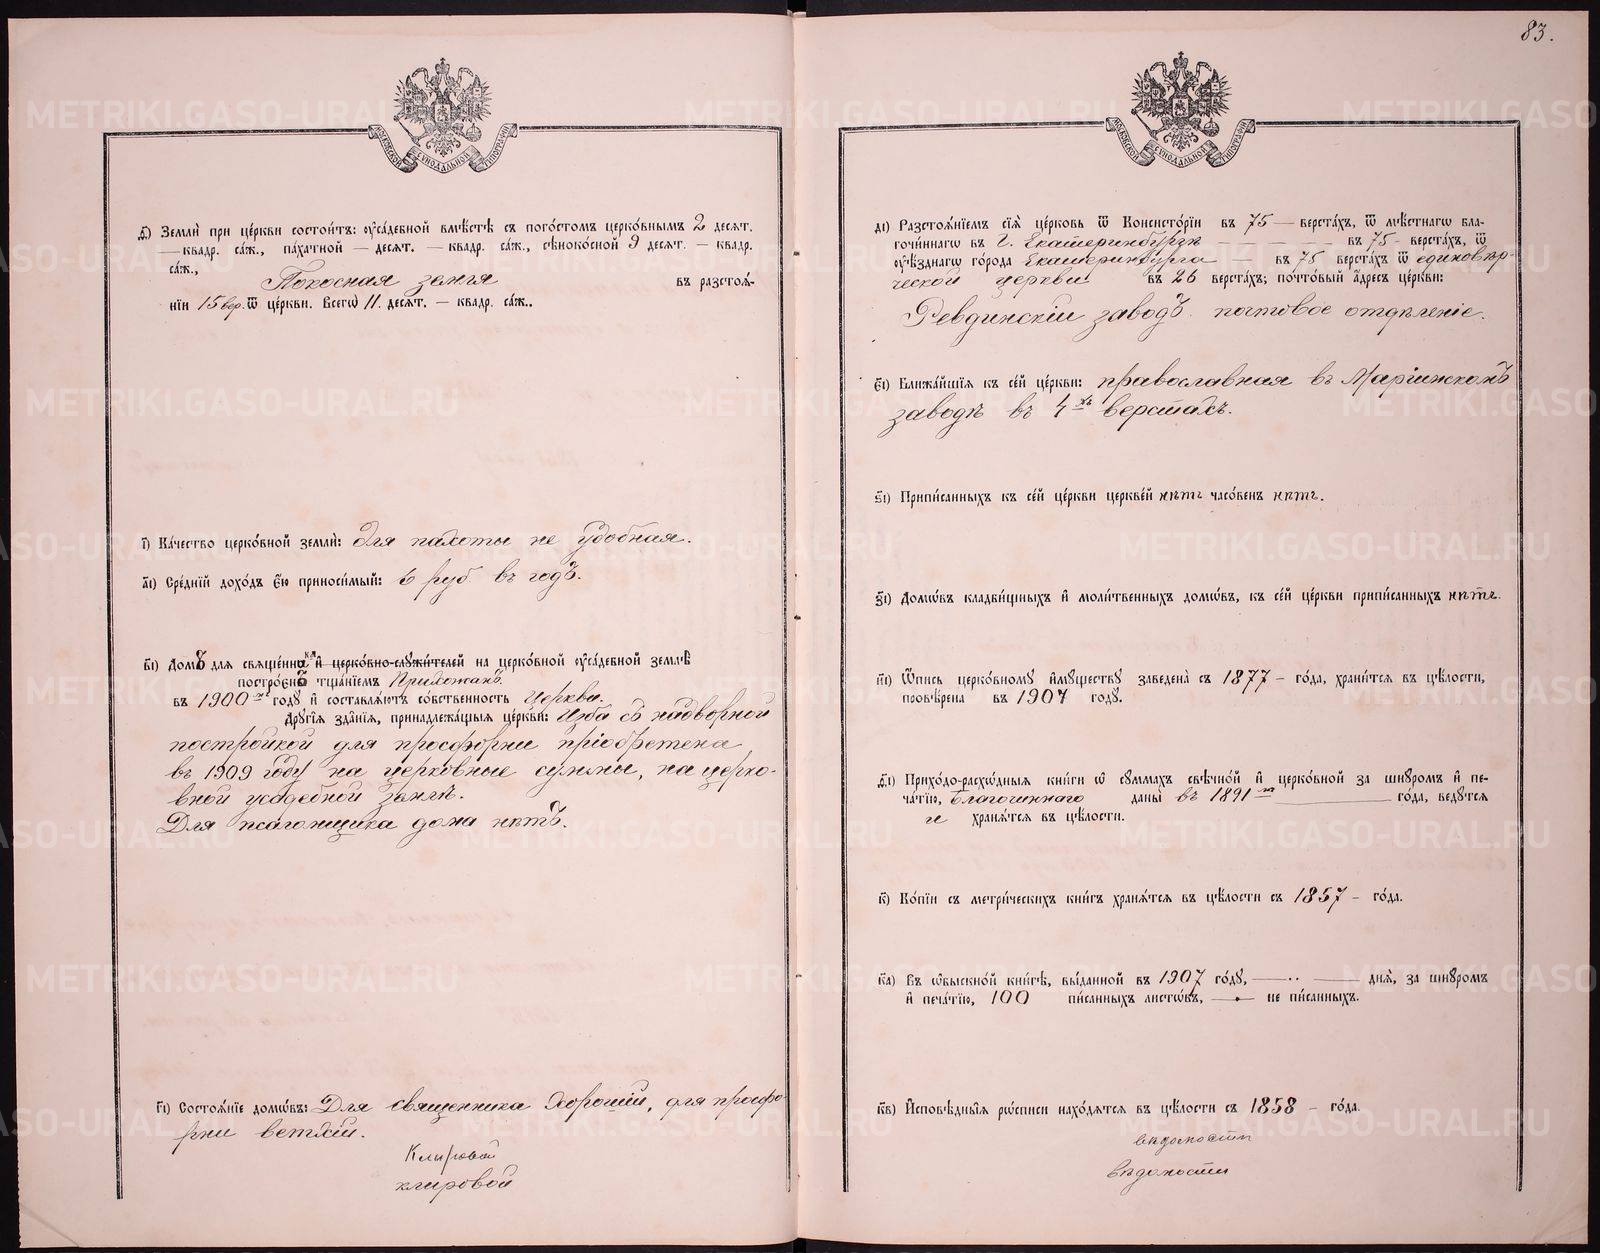 83.
МОСКОВСКОЙ СѴНОДАЛЬНОЙ ТИПОГРАФІИ
д҃) Землѝ при це́ркви состои́тъ: оуса́дебной вмѣ́стѣ съ пого́стомъ церко́внымъ 2 десѧт.
— квадр. са́ж., па́хатной — десѧт. — квадр. са́ж., сѣнокосной 9 десѧт. — квадр.
са́ж., Покосная земля въ разстоѧ́-
нїи 15 вер. ѿ це́ркви. Всегѡ 11. десѧт. — квадр. са́ж..
і҃) Ка́чество церко́вной землѝ: Для пахоты не удобная.
а҃і) Сре́днїй дохо́дъ є́ю приноси́мый: 6 руб въ годъ.
в҃і) Домъ для свѧще́нника и҆ церко́вно-служи́телей на церко́вной оуса́дебной землѣ̀
постро́енъ тща́нїемъ Прихожанъ
въ 1900 мъ году̀ и҆ составлѧ́ютъ со́бственность Церкви.
Дрꙋгі́ѧ зда̑нїѧ, принадлежа́щыѧ це́ркви: Изба съ надворной
постройкой для просфорни пріобретена
въ 1909 году на церковные суммы, на церко-
вной усадебной землѣ.
Для псаломщика дома нѣтъ.
г҃і) Состоѧ́нїе домѡ́въ: Для священника хорошій, для просфо-
рни ветхій.
Клировой
клировой
д҃і) Разстоѧ́нїемъ сїѧ̀ це́рковь ѿ Консисто́рїи въ 75 — верста́хъ, ѿ мѣ́стнагѡ бла-
гочи́ннагѡ въ Г. Екатеринбургѣ — — — — въ 75 - верста́хъ, ѿ
оуѣ́зднагѡ го́рода Екатеринбурга — въ 75 верста́хъ ѿ единовѣр-
ческой церкви въ 26 верста́хъ; почто́вый а́дресъ це́ркви:
Ревдинскій заводъ. почтовое отдѣленіе.
є҃і) Ближа́йшїѧ къ се́й це́ркви: православная въ Маріинскомъ
заводѣ въ 4 хъ верстахъ.
ѕ҃і) Припи́санныхъ къ се́й це́ркви церкве́й нѣтъ часо́венъ нѣтъ.
з҃і) Домѡ́въ кладби́щныхъ и҆ моли́твенныхъ домѡ́въ, къ се́й це́ркви припи́санныхъ нѣтъ.
и҃і) Ѡ́пись церко́вномꙋ и҆мꙋ́ществꙋ заведена̀ съ 1877 - го́да, храни́тсѧ въ цѣ́лости,
провѣ́рена въ 1907 годꙋ̀.
ѳ҃і) Прихо́до-расхо́дныѧ кни́ги ѡ сꙋ́ммахъ свѣчно́й и҆ церко́вной за шнꙋро́мъ и҆ пе-
ча́тїю, благочиннаго даны̀ въ 1891 мъ — го́да, ведꙋ́тсѧ
и храни́тсѧ въ цѣ́лости.
к҃) Ко́пїи съ метри́ческихъ кни́гъ хранѧ́тсѧ въ цѣ́лости съ 1857 - го́да.
к҃а) Въ ѡ҆бы́скной кни́гѣ, вы́данной въ 1907 го́дꙋ, — .. — днѧ̀, за шнꙋро́мъ
и҆ печа́тїю, 100 пи́санныхъ листѡ́въ, — не пи́санныхъ.
к҃в) Исповѣ́дныѧ рѡ́списи нахо́дѧтсѧ въ цѣ́лости съ 1858 - го́да.
вѣдомости
вѣдомости
METRIKI.GASO-URAL.RU